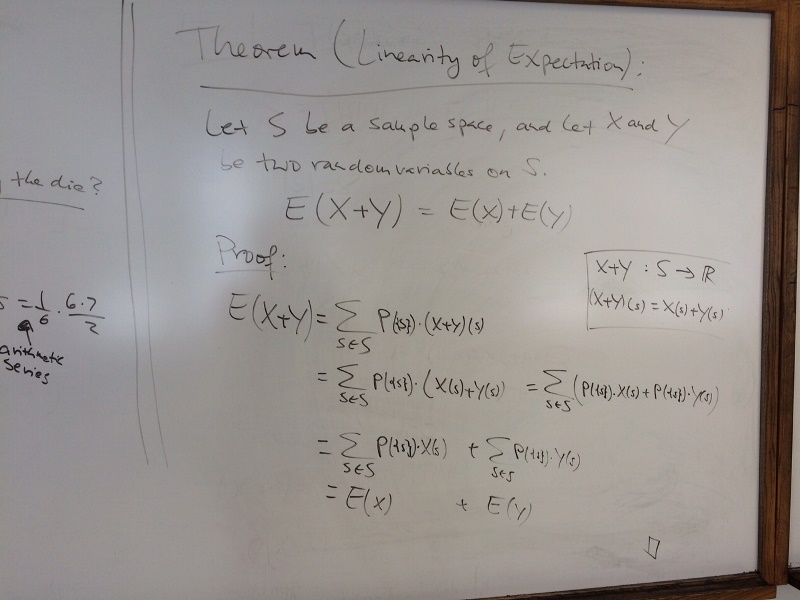 the die?
= 1/6 · 6·7/2
arithmetic
series
Theorem (Linearity of Expectation):
Let S be a sample space, and let X and Y
be two random variables on S.
E(X+Y) = E(X)+E(Y)
Proof:
X+Y : S → ℝ
(X+Y)(s) = X(s)+Y(s)
E(X+Y) = ∑_{s∈S} P({s})·(X+Y)(s)
= ∑_{s∈S} P({s})·(X(s)+Y(s) = ∑_{s∈S} (P({s})·X(s)+P({s})·Y(s))
= ∑_{s∈S} P({s})·X(s) + ∑_{s∈S} P({s})·Y(s)
= E(X) + E(Y)
□